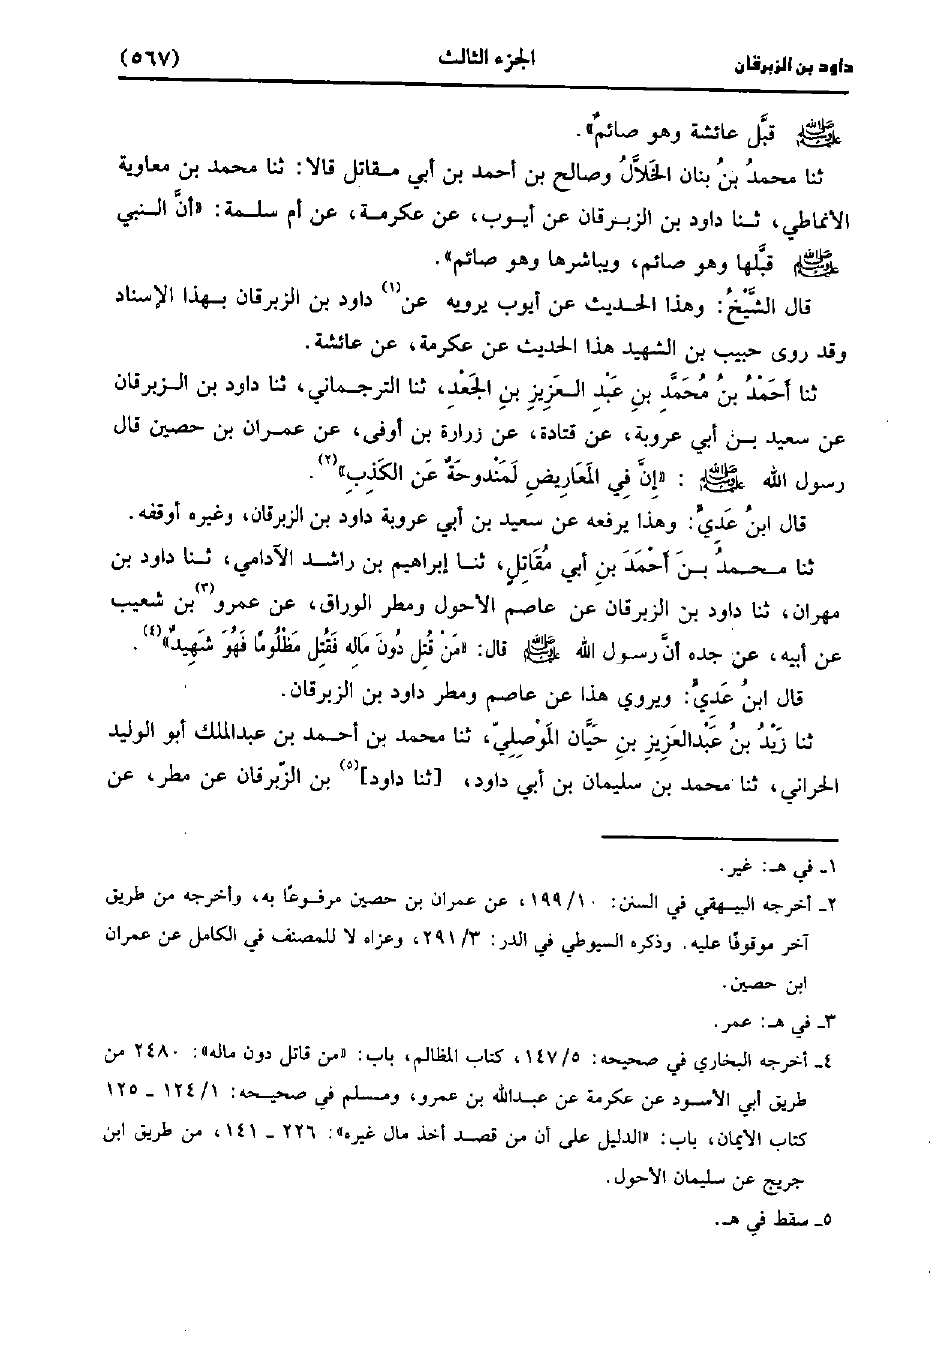 داود بن الزبرقان الجزء الثالث (٥٦٧)
ﷺ قبَّل عائشة وهو صائمٌ».
ثنا محمدُ بنُ بنان الخَلاَّلُ وصالح بن أحمد بن أبي مقاتل قالا: ثنا محمد بن معاوية
الأنماطي، ثنا داود بن الزبرقان عن أيوب، عن عكرمة، عن أم سلمة: «أنَّ النبي
ﷺ قبَّلها وهو صائم، ويباشرها وهو صائم».
قال الشَّيْخُ: وهذا الحديث عن أيوب يرويه عن(١) داود بن الزبرقان بهذا الإسناد
وقد روى حبيب بن الشهيد هذا الحديث عن عكرمة، عن عائشة.
ثنا أَحَمْدُ بنُ مُحَمَّدِ بنِ عَبْدِ العَزِيزِ بنِ الجَعْدِ، ثنا الترجماني، ثنا داود بن الزبرقان
عن سعيد بن أبي عروبة، عن قتادة، عن زرارة بن أوفى، عن عمران بن حصين قال
رسول الله ﷺ : «إنَّ فِي المَعَارِيضِ لَمَنْدوحَةٌ عَنِ الكَذِبِ»(٢).
قال ابنُ عَدِيٍّ: وهذا يرفعه عن سعيد بن أبي عروبة داود بن الزبرقان، وغيره أوقفه.
ثنا محمدُ بنَ أَحْمَدَ بنِ أبي مُقَاتِلٍ، ثنا إبراهيم بن راشد الآدامي، ثنا داود بن
مهران، ثنا داود بن الزبرقان عن عاصم الأحول ومطر الوراق، عن عمرو(٣) بن شعيب
عن أبيه، عن جده أنَّ رسول الله ﷺ قال: «مَنْ قُتِل دُونَ مَالِهِ فَقُتِل مَظْلُومًا فَهُوَ شَهِيدٌ»(٤).
قال ابنُ عَدِيٍّ: ويروي هذا عن عاصم ومطر داود بن الزبرقان.
ثنا زَيْدُ بنُ عَبْدالعَزِيزِ بنِ حَيَّان المَوْصِلِيّ، ثنا محمد بن أحمد بن عبدالملك أبو الوليد
الحراني، ثنا محمد بن سليمان بن أبي داود، [ثنا داود](٥) بن الزّبرقان عن مطر، عن
١ـ في هـ: غير.
٢ـ أخرجه البيهقي في السنن: ١٩٩/١٠، عن عمران بن حصين مرفوعًا به، وأخرجه من طريق
آخر موقوفًا عليه. وذكره السيوطي في الدر: ٢٩١/٣، وعزاه لا للمصنف في الكامل عن عمران
ابن حصين.
٣ـ في هـ: عمر.
٤ـ أخرجه البخاري في صحيحه: ١٤٧/٥، كتاب المظالم، باب: «من قاتل دون ماله»: ٢٤٨٠ من
طريق أبي الأسود عن عكرمة عن عبدالله بن عمرو، ومسلم في صحيحه: ١٢٤/١ ـ ١٢٥
كتاب الأيمان، باب: «الدليل على أن من قصد أخذ مال غيره»: ٢٢٦ ـ ١٤١، من طريق ابن
جريج عن سليمان الأحول.
٥ـ سقط في هـ.